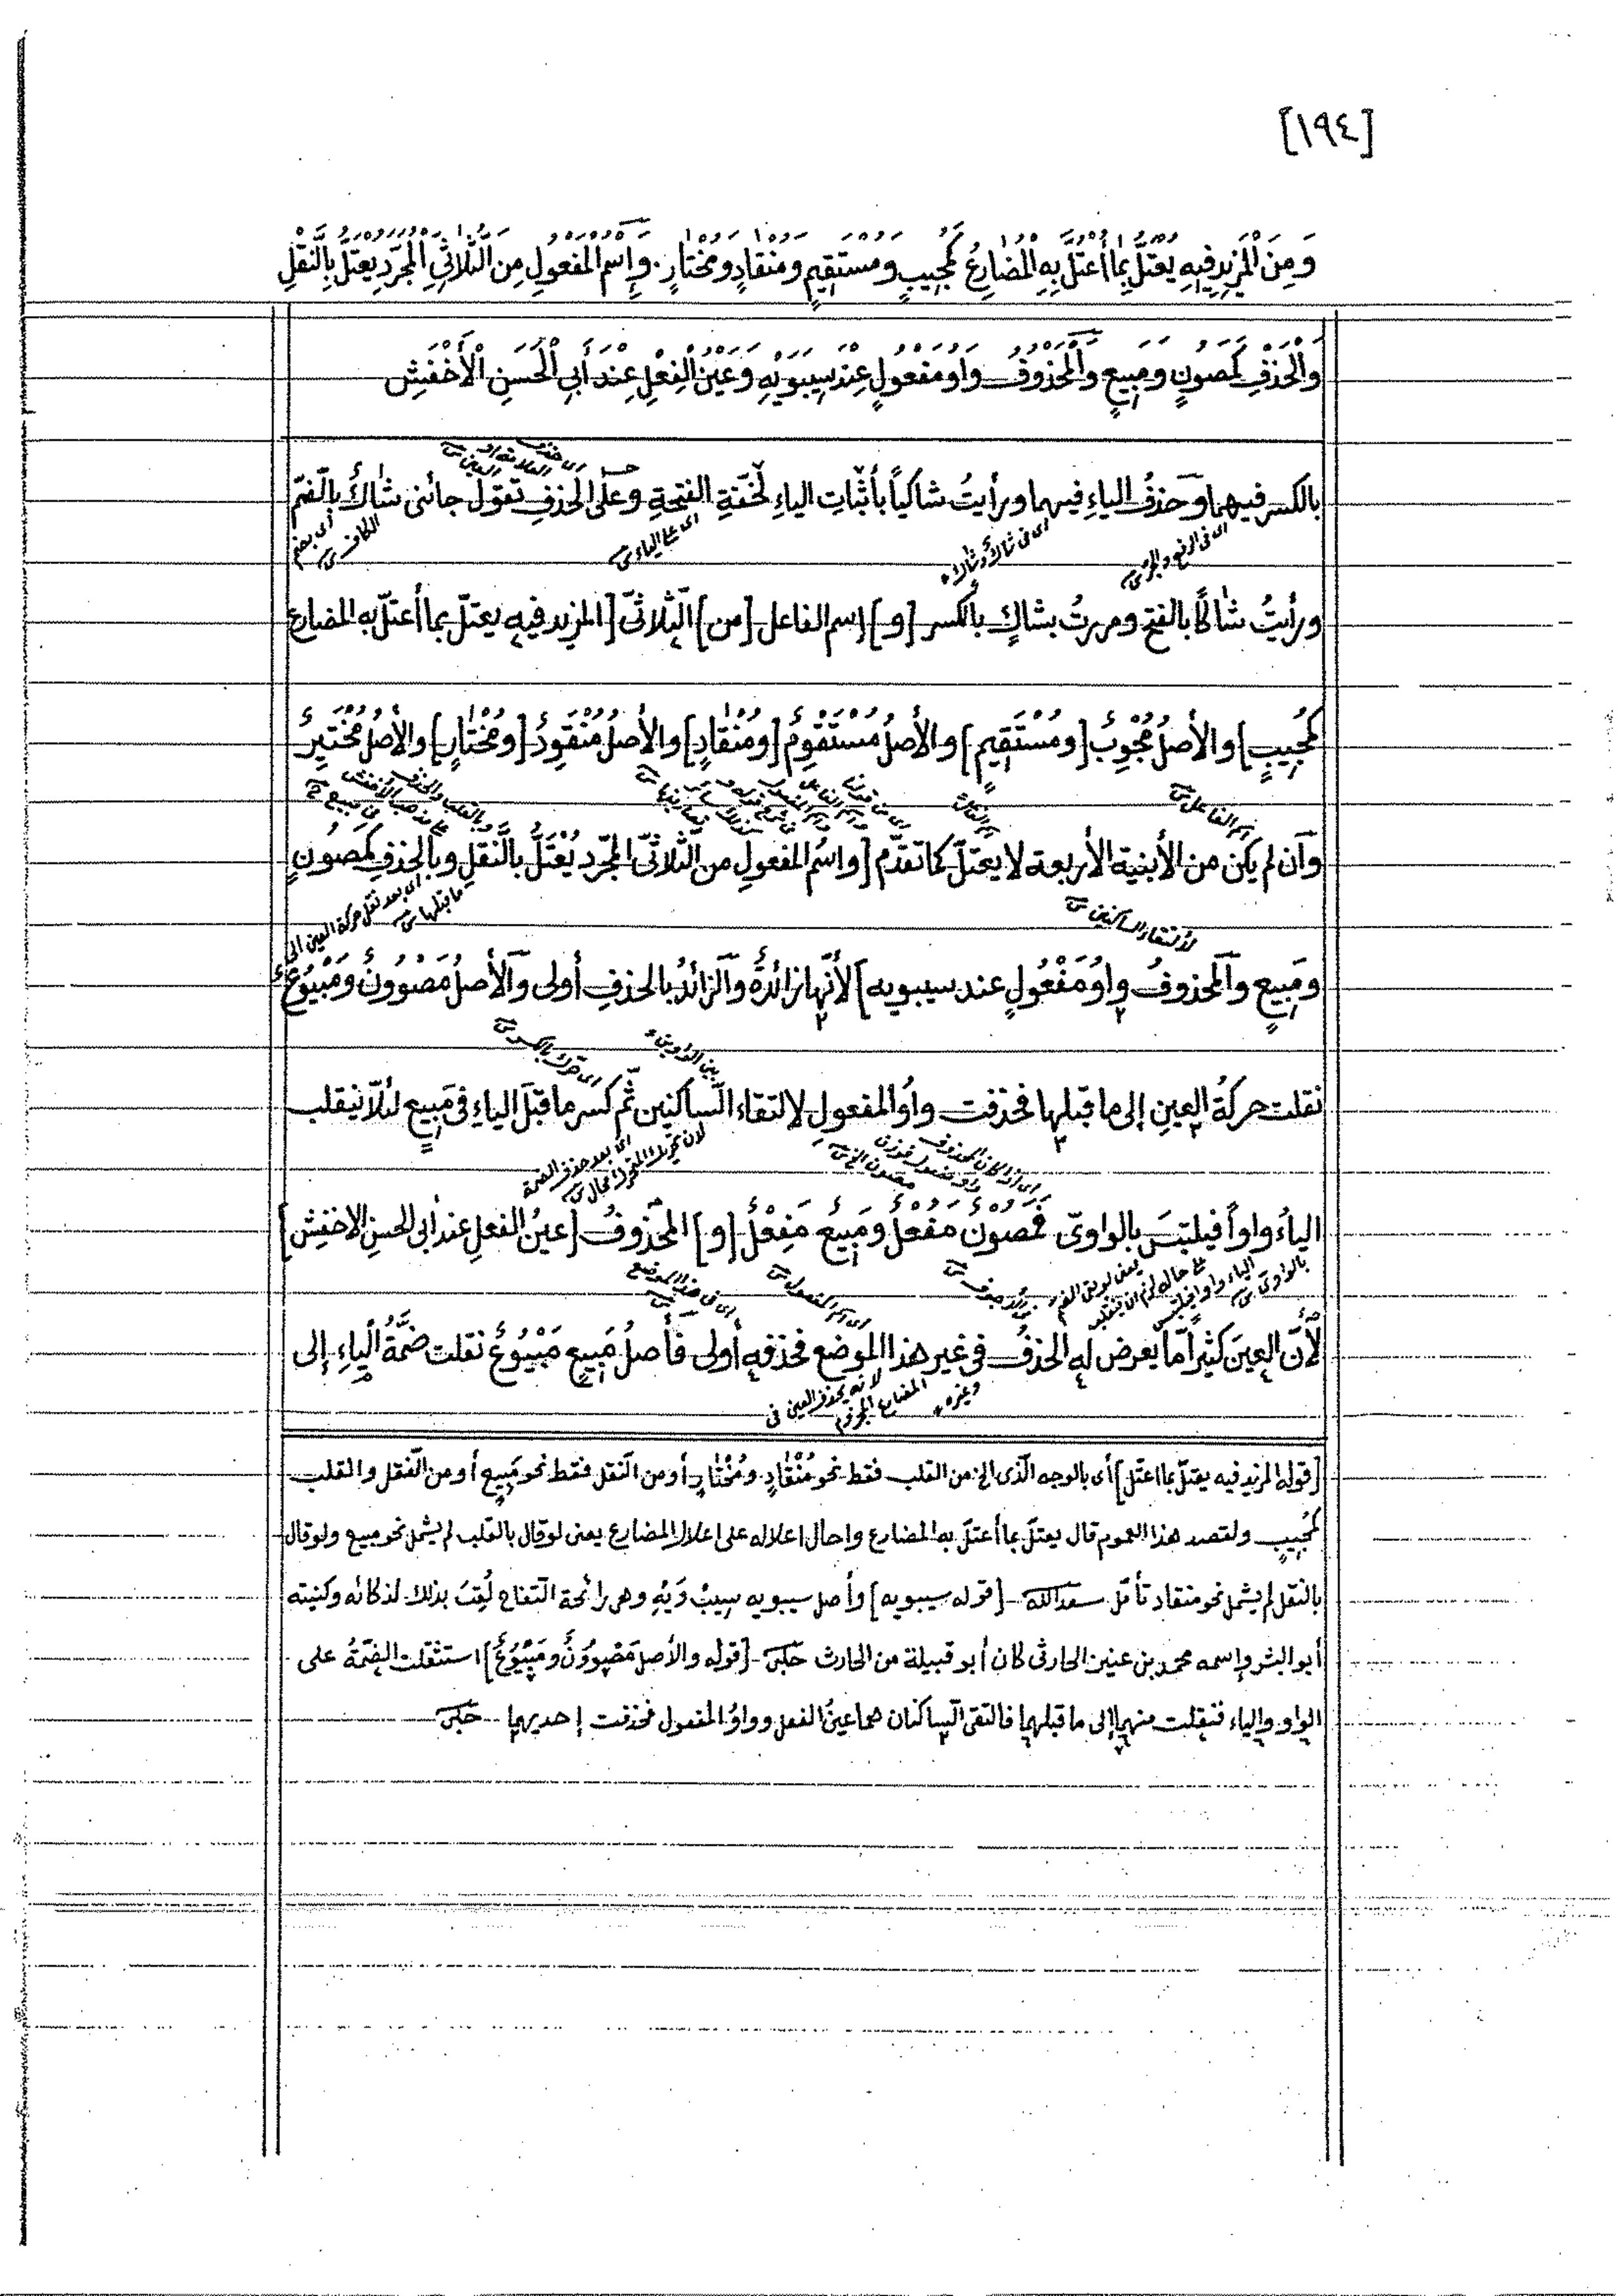 [١٩٤]
وَمِنَ الْمَزِيدِ فِيهِ يُعْتَلُّ بِمَا أُعْتُلَّ بِهِ الْمُضَارِعُ كَمُجِيبٍ وَمُسْتَقِيمٍ وَمُنْقَادٍ وَمُخْتَارٍ. وَإِسْمُ الْمَفْعُولِ مِنَ الثُّلَاثِيِّ الْمُجَرَّدِ يُعْتَلُّ بِالنَّقْلِ
وَالْحَذْفِ كَمَصُونٍ وَمَبِيعٍ وَالْمَحْذُوفُ وَاوُ مَفْعُولٍ عِنْدَ سِيبَوَيْهِ وَعَيْنُ الْفِعْلِ عِنْدَ أَبِي الْحَسَنِ الْأَخْفَشِ
بالكسر فيهما وحذفُ الياءِ فيهما ورأيتُ شاكياً بأثبات الياءِ لخفّةِ الفتحةِ وعلى الحذفِ تقول جائنى شاكٌ بالضّمّ
اى فى الرفع والجر
اى بضم الكاف
ورأيتُ شاكًا بالفتح ومررتُ بشاكٍ بالكسر [و] إسم الفاعل [من] الثّلاثىّ [المزيد فيه يعتلّ بما أعتلّ به المضارع
كمُجِيبٍ] والأصلُ مُجْوِبٌ [ومُسْتَقِيمٍ] والأصلُ مُسْتَقْوِمٌ [ومُنْقَادٍ] والأصلُ مُنْقَوِدٌ [ومُخْتَارٍ] والأصلُ مُخْتَيِرٌ
اسم الفاعل
وأن لم يكن من الأبنية الأربعة لا يعتلّ كما تقدّم [واسْمُ المفعولِ من الثّلاثىّ المجرّد يُعْتَلُّ بالنَّقلِ وبالحذفِ كمَصُونٍ
لألتقاء الساكنين
اى بعد نقل حركة العين الى ما قبلها
ومَبِيعٍ والمحذوفُ واوُ مَفْعُولٍ عند سيبويه] لأنّها زائدةٌ والزائدُ بالحذفِ أولى والأصلُ مَصْوُونٌ ومَبْيُوعٌ
بين الواوين
نقلت حركةُ العينِ إلى ما قبلها فحذفت واوُ المفعول لالتقاء السّاكنين ثمّ كسر ما قبل الياءِ فى مَبِيعٍ لئلّا ينقلب
اى بعد حذف الضمة
الياءُ واواً فيلتبسَ بالواوىّ فمصون مَفُعْلٌ ومَبِيعٌ مَفِعْلٌ [و] المحذوفُ [عينُ الفعلِ عند أبى الحسنِ الاخفشِ]
اى اسم المفعول
لأنّ العينَ كثيراً مّا يعرض له الحذفُ فى غير هذا الموضع فحذفه أولى فأصلُ مَبِيعٍ مَبْيُوعٌ نقلت ضمّةُ الياءِ إلى
لانه يحذف العين فى المضارع المجزوم وغيره
[قوله المزيد فيه يعتلّ بما اعتلّ] أى بالوجه الّذى الخ من القلب فقط نحو مُنْقَادٍ ومُخْتَارٍ أو من النّقل فقط نحو مَبِيعٍ أو من النّقل والقلب
كمُجِيبٍ ولقصد هذا العموم قال يعتلّ بما أعتلّ به المضارع واحال اعلاله على اعلال المضارع يعنى لو قال بالقلب لم يشمل نحو مبيع ولو قال
بالنقل لم يشمل نحو منقاد تأمّل سعد الله - [قوله سيبويه] وأصل سيبويه سيبْ وَيْهِ وهى رائحة التّفاح لُقِبَ بذلك لذكائه وكنيته
أبو البشر وإسمه محمد بن عنين الحارثى كان أبو قبيلة من الحارث - [قوله والأصل مَصْوُونٌ ومَبْيُوعٌ] استثقلت الضّمّةُ على
الواو والياء فنقلت منهما إلى ما قبلهما فالتقى السّاكنان هما عينُ الفعل وواوُ المفعول فحذفت إحديهما